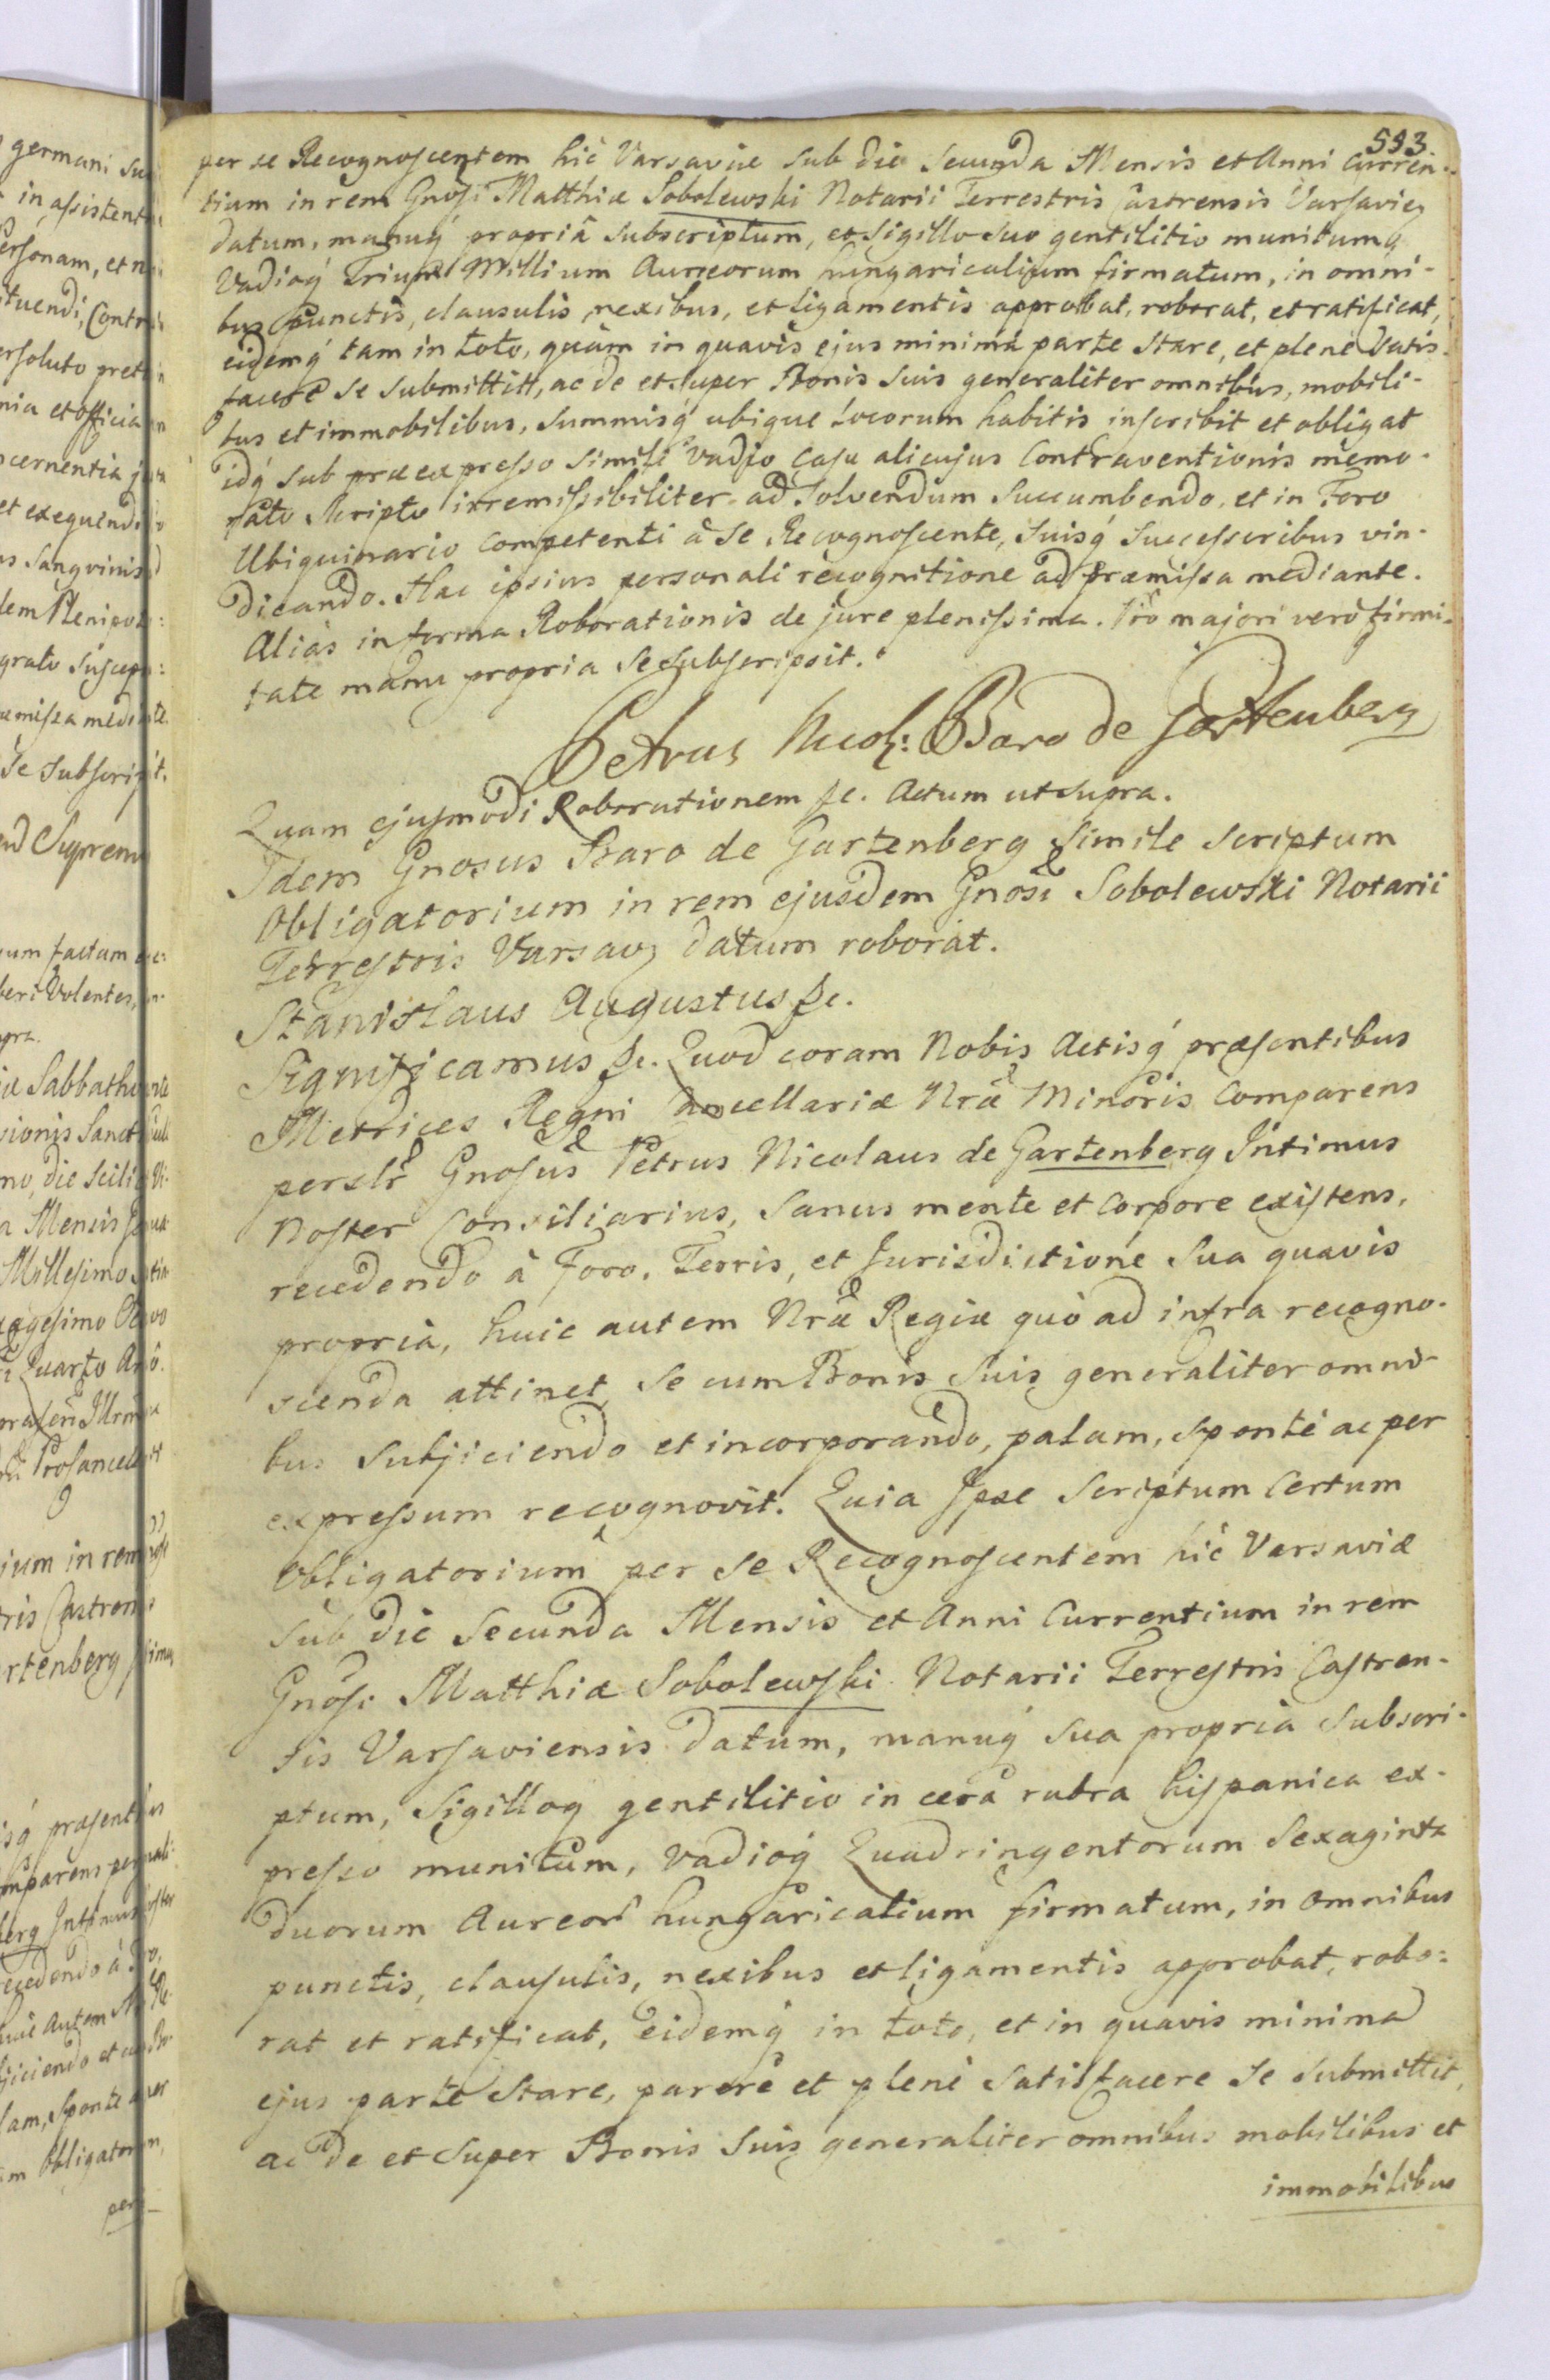 593
per se Recognoscentem hic Varsaviæ sub die Secunda Mensis et Anni Curren-
tium in rem Gnosi Matthiæ Sobolewski Notarii Terrestris Castrensis Varsavien
datum, manuq́ propriâ subscriptum, et Sigillo suo gentilitio munitumq́
Vadioq́ Trium Millium Aureorum hungaricalium firmatum, in omni-
bus punctis, clausulis, nexibus, et ligamentis approbat, roborat, et ratificat,
eidemq́ tam in toto, quàm in quavis ejus minima parte stare, et plenè Satis-
facere se submittitt, ac de et super Bonis suis generaliter omnibus, mobili-
bus et immobilibus, Summisq́ ubique locorum habitis inscribit et obligat
idq́ sub præexpresso simili Vadio casu alicujus Contraventionis memo-
rato Scripto irremissibiliter ad Solvendum Succumbendo, et in Foro
Ubiquinario competenti à se Recognoscente, Suisq́ Successoribus vin-
dicando. Hac ipsius personali recognitione ad præmissa mediante.
Aliàs in forma Roborationis de jure plenissima. Pro majori verò firmi-
tate manu propria se subscripsit.
Petrus Nicol: Baro de Gartenberg
Quam ejusmodi Roborationem &c. Actum ut supra.
Idem Gnosus Baro de Gartenberg Simile Scriptum
Obligatorium in rem ejusdem Gnosi Sobolewski Notarii
Terrestris Varsav datum roborat.
Stanislaus Augustus &c.
Significamus &c. Quod coram Nobis Actisq́ præsentibus
Metrices Regni Cancellariæ Nræ Minoris Comparens
persłr Gnosus Petrus Nicolaus de Gartenberg Intimus
Noster Consiliarius, Sanus mente et Corpore existens,
recedendo à Foro, Terris, et Jurisdictione Sua quavis
propriâ, huic autem Nræ Regiæ quò ad infra recogno-
scenda attinet, Se cum Bonis Suis generaliter omni-
bus Subjiciendo et incorporando, palam, Spontè ac per
expressum recognovit. Quia Ipse Scriptum Certum
Obligatorium per se Recognoscentem hic Varsaviæ
sub die Secunda Mensis et Anni Currentium in rem
Gnosi Matthiæ Sobolewski Notarii Terrestris Castren-
sis Varsaviensis datum, manuq́ sua propria Subscri-
ptum, Sigilloq́ gentilitio in cera rubra hispanica ex-
presso munitum, Vadioq́ Quadringentorum Sexaginta
duorum Aureor hungaricalium firmatum, in omnibus
punctis, clausulis, nexibus et ligamentis approbat, robo-
rat et ratificat, eidemq́ in toto, et in quavis minima
ejus parte stare, parere et plenè Satisfacere Se Submittit,
ac de et Super Bonis Suis generaliter omnibus mobilibus et
immobilibus